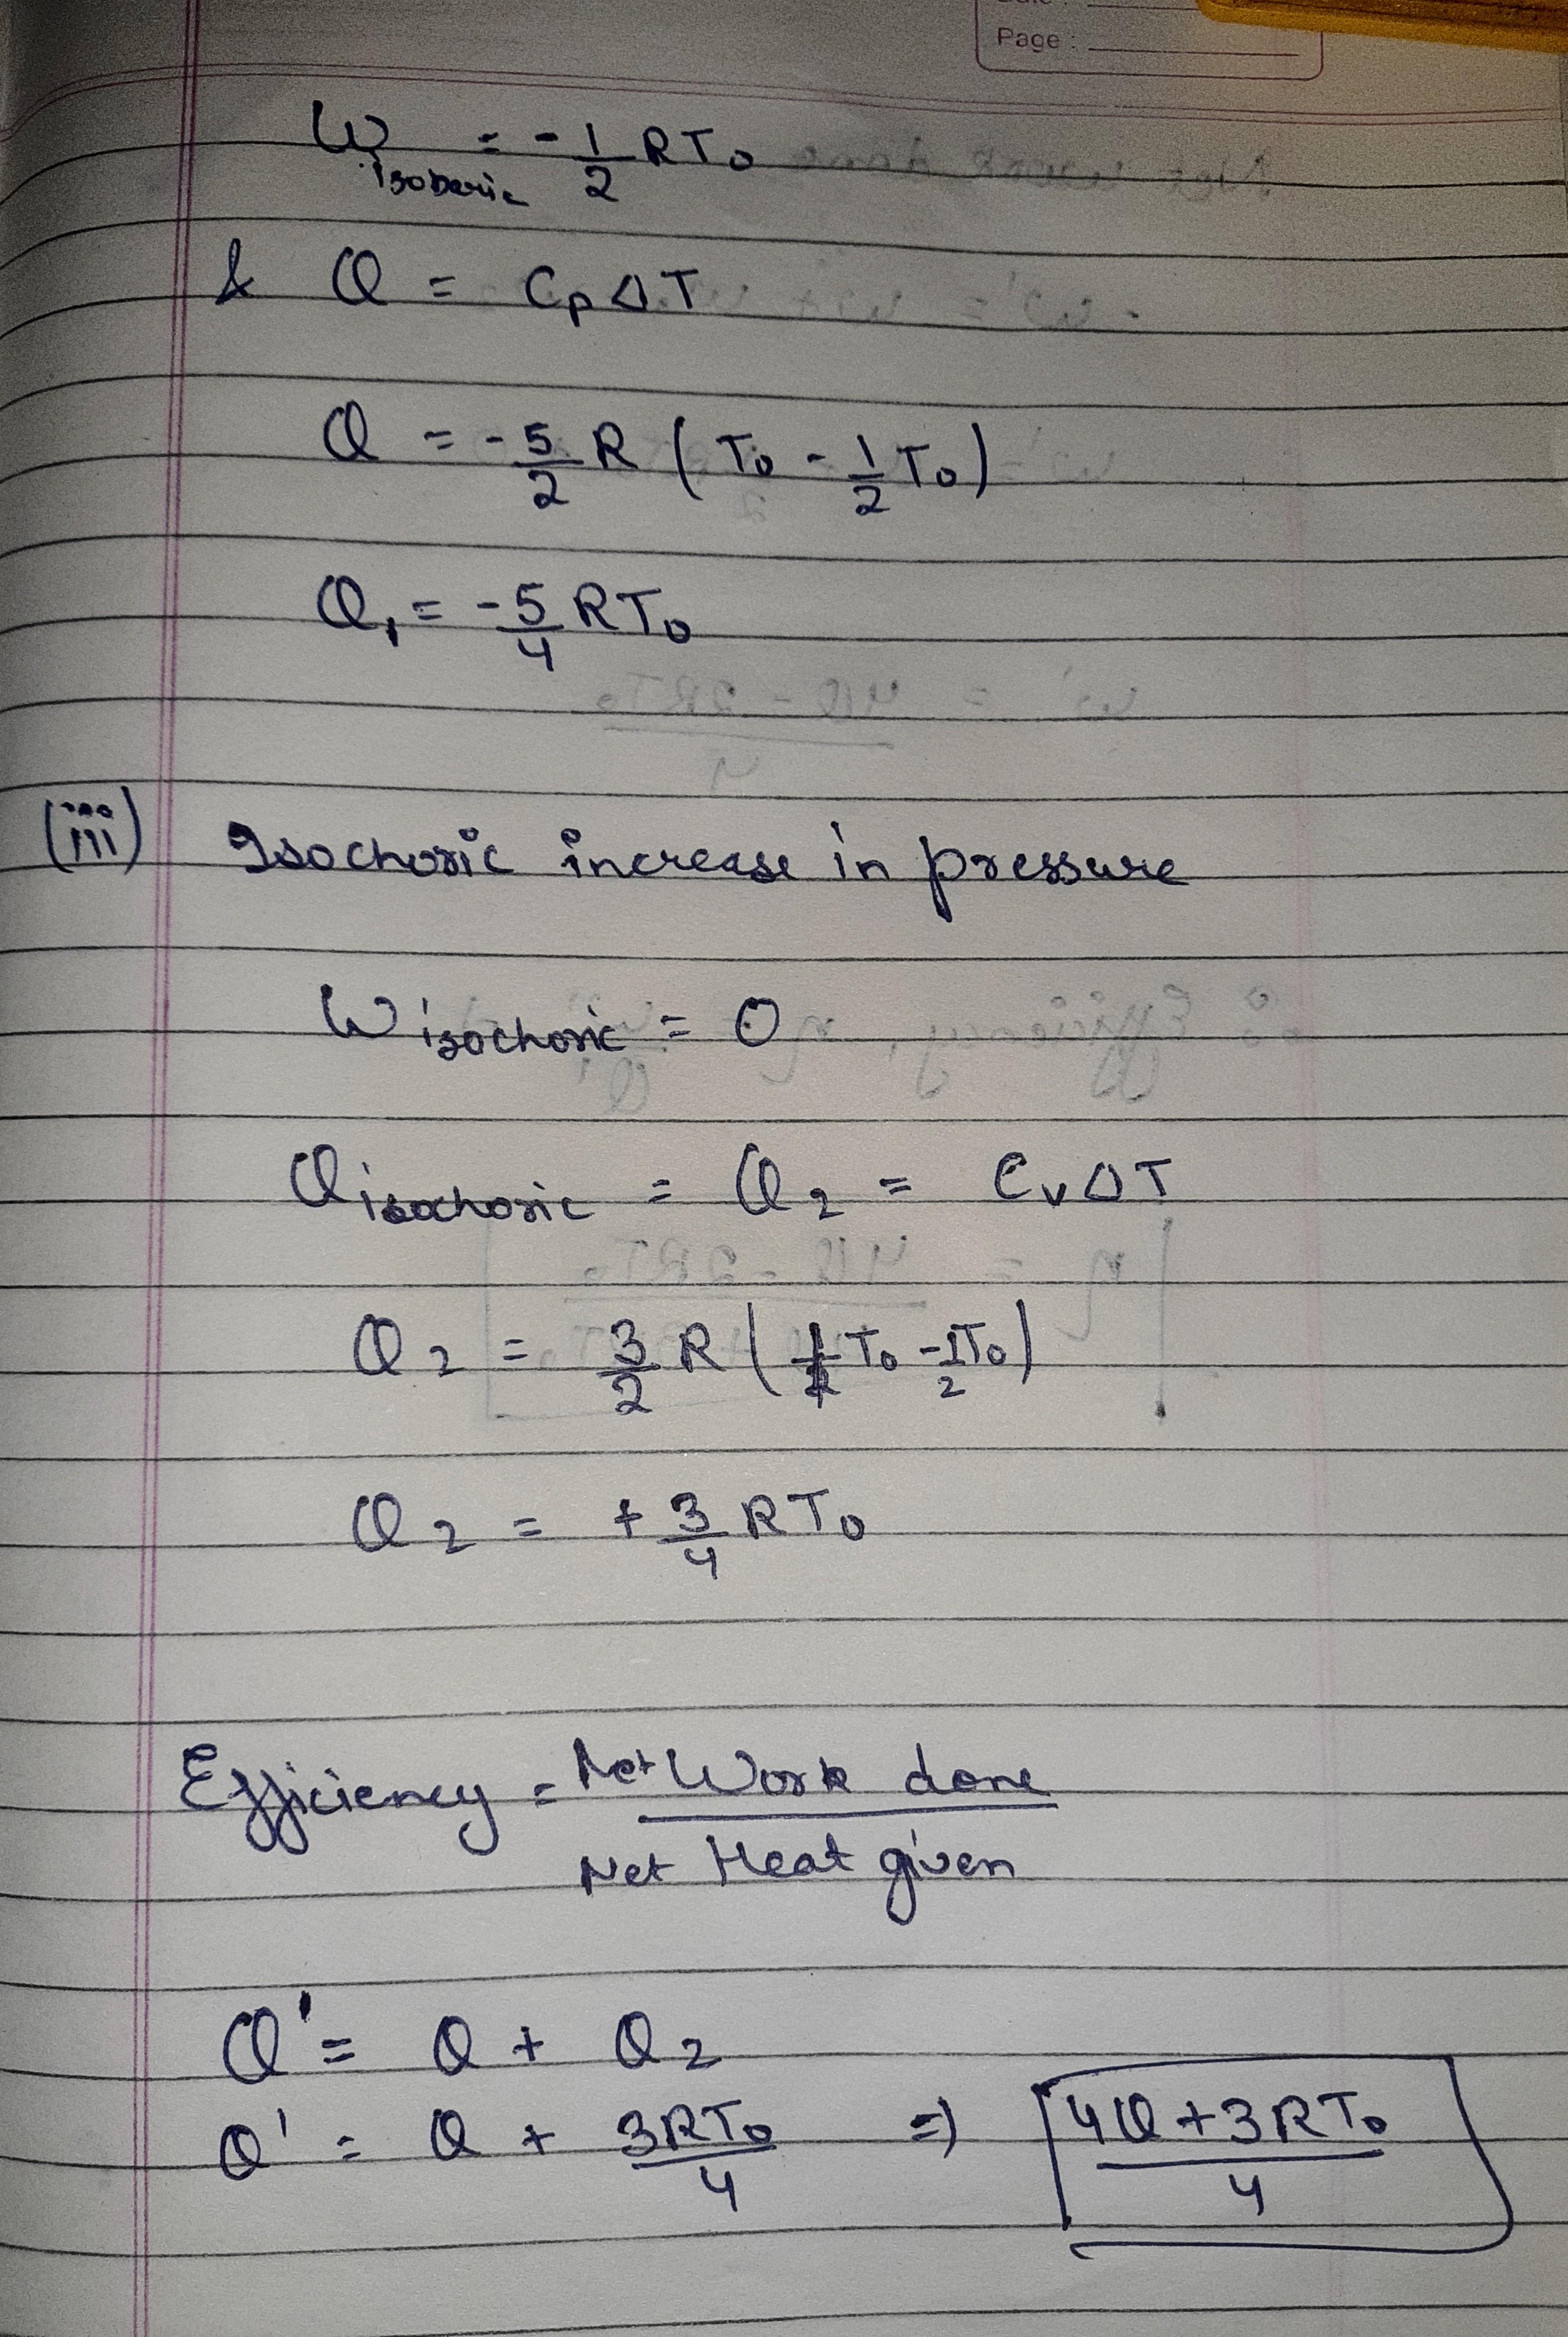 Page :
W isobaric = - 1/2 RT₀
& Q = Cp ΔT
Q = - 5/2 R ( T₀ - 1/2 T₀ )
Q₁ = - 5/4 RT₀
(iii) Isochoric increase in pressure
W isochoric = 0
Q isochoric = Q₂ = Cv ΔT
Q₂ = 3/2 R ( T₀ - 1/2 T₀ )
Q₂ = + 3/4 RT₀
Efficiency = Net Work done / Net Heat given
Q' = Q + Q₂
Q' = Q + 3RT₀/4 ⇒ 4Q + 3RT₀ / 4